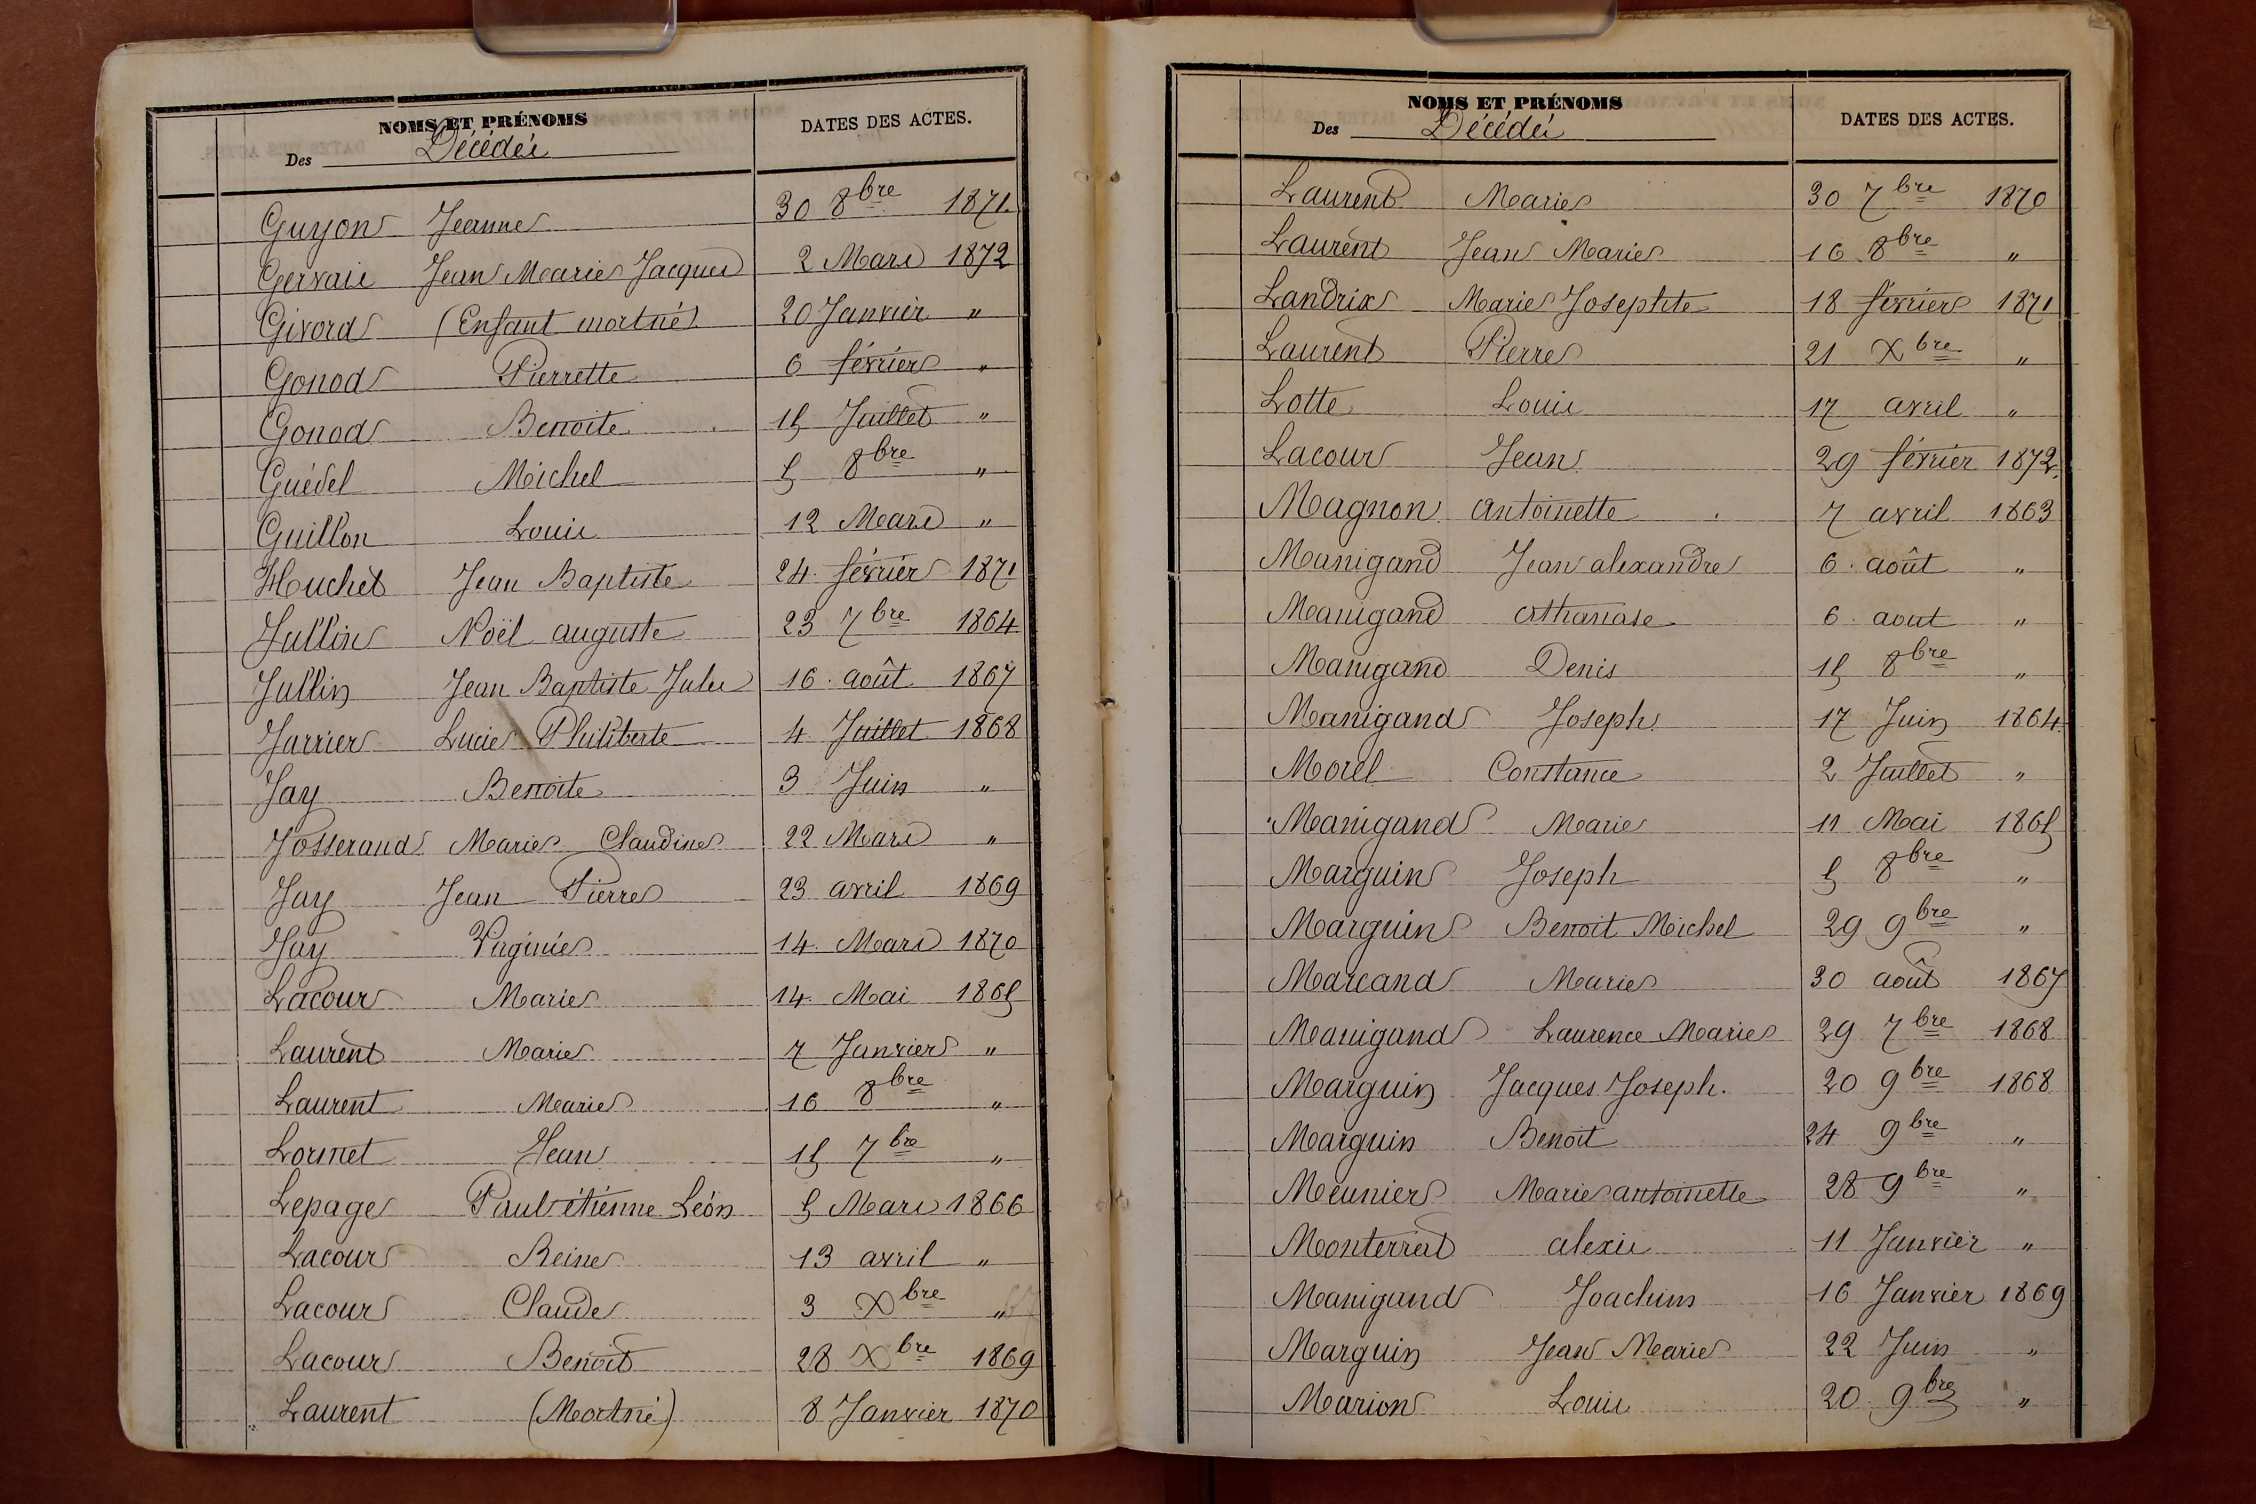 NOMS ET PRÉNOMS
Des Décédés
DATES DES ACTES.
Guyon Jeanne 30 8bre 1871.
Gervais Jean Marie Jacques 2 Mars 1872
Givord (Enfant mortné) 20 Janvier "
Gonod Pierrette 6 février "
Gonod Benoite 15 Juillet "
Guédel Michel 5 8bre "
Guillon Louis 12 Mars "
Huchet Jean Baptiste 24 février 1871
Jullin Noël auguste 23 7bre 1864
Jullin Jean Baptiste Jules 16 août 1867
Jarrier Lucie Philiberte 4 Juillet 1868
Jay Benoite 3 Juin "
Josserand Marie Claudine 22 Mars "
Jay Jean Pierre 23 avril 1869
Jay Virginie 14 Mars 1870
Lacour Marie 14 Mai 1865
Laurent Marie 7 Janvier "
Laurent Marie 16 8bre "
Lormet Jean 15 7bre "
Lepage Paul étienne Léon 5 Mars 1866
Lacour Reine 13 avril "
Lacour Claude 3 Xbre "
Lacour Benoit 28 Xbre 1869
Laurent (Mortné) 8 Janvier 1870
NOMS ET PRÉNOMS
Des Décédés
DATES DES ACTES.
Laurent Marie 30 7bre 1870
Laurent Jean Marie 16 8bre "
Landrix Marie Josephte 18 février 1871
Laurent Pierre 21 Xbre "
Lotte Louis 17 avril "
Lacour Jean 29 février 1872.
Magnon antoinette 7 avril 1863
Manigand Jean alexandre 6 août "
Manigand athanase 6 aout "
Manigand Denis 15 8bre "
Manigand Joseph 17 Juin 1864
Morel Constance 2 Juillet "
Manigand Marie 11 Mai 1865
Marguin Joseph 5 8bre "
Marguin Benoit Michel 29 9bre "
Marcand Marie 30 août 1867
Manigand Laurence Marie 29 7bre 1868
Marguin Jacques Joseph. 20 9bre 1868
Marguin Benoit 24 9bre "
Meunier Marie antoinette 28 9bre "
Monterrat alexis 11 Janvier "
Manigand Joachim 16 Janvier 1869
Marguin Jean Marie 22 Juin "
Marion Louis 20 9bre "